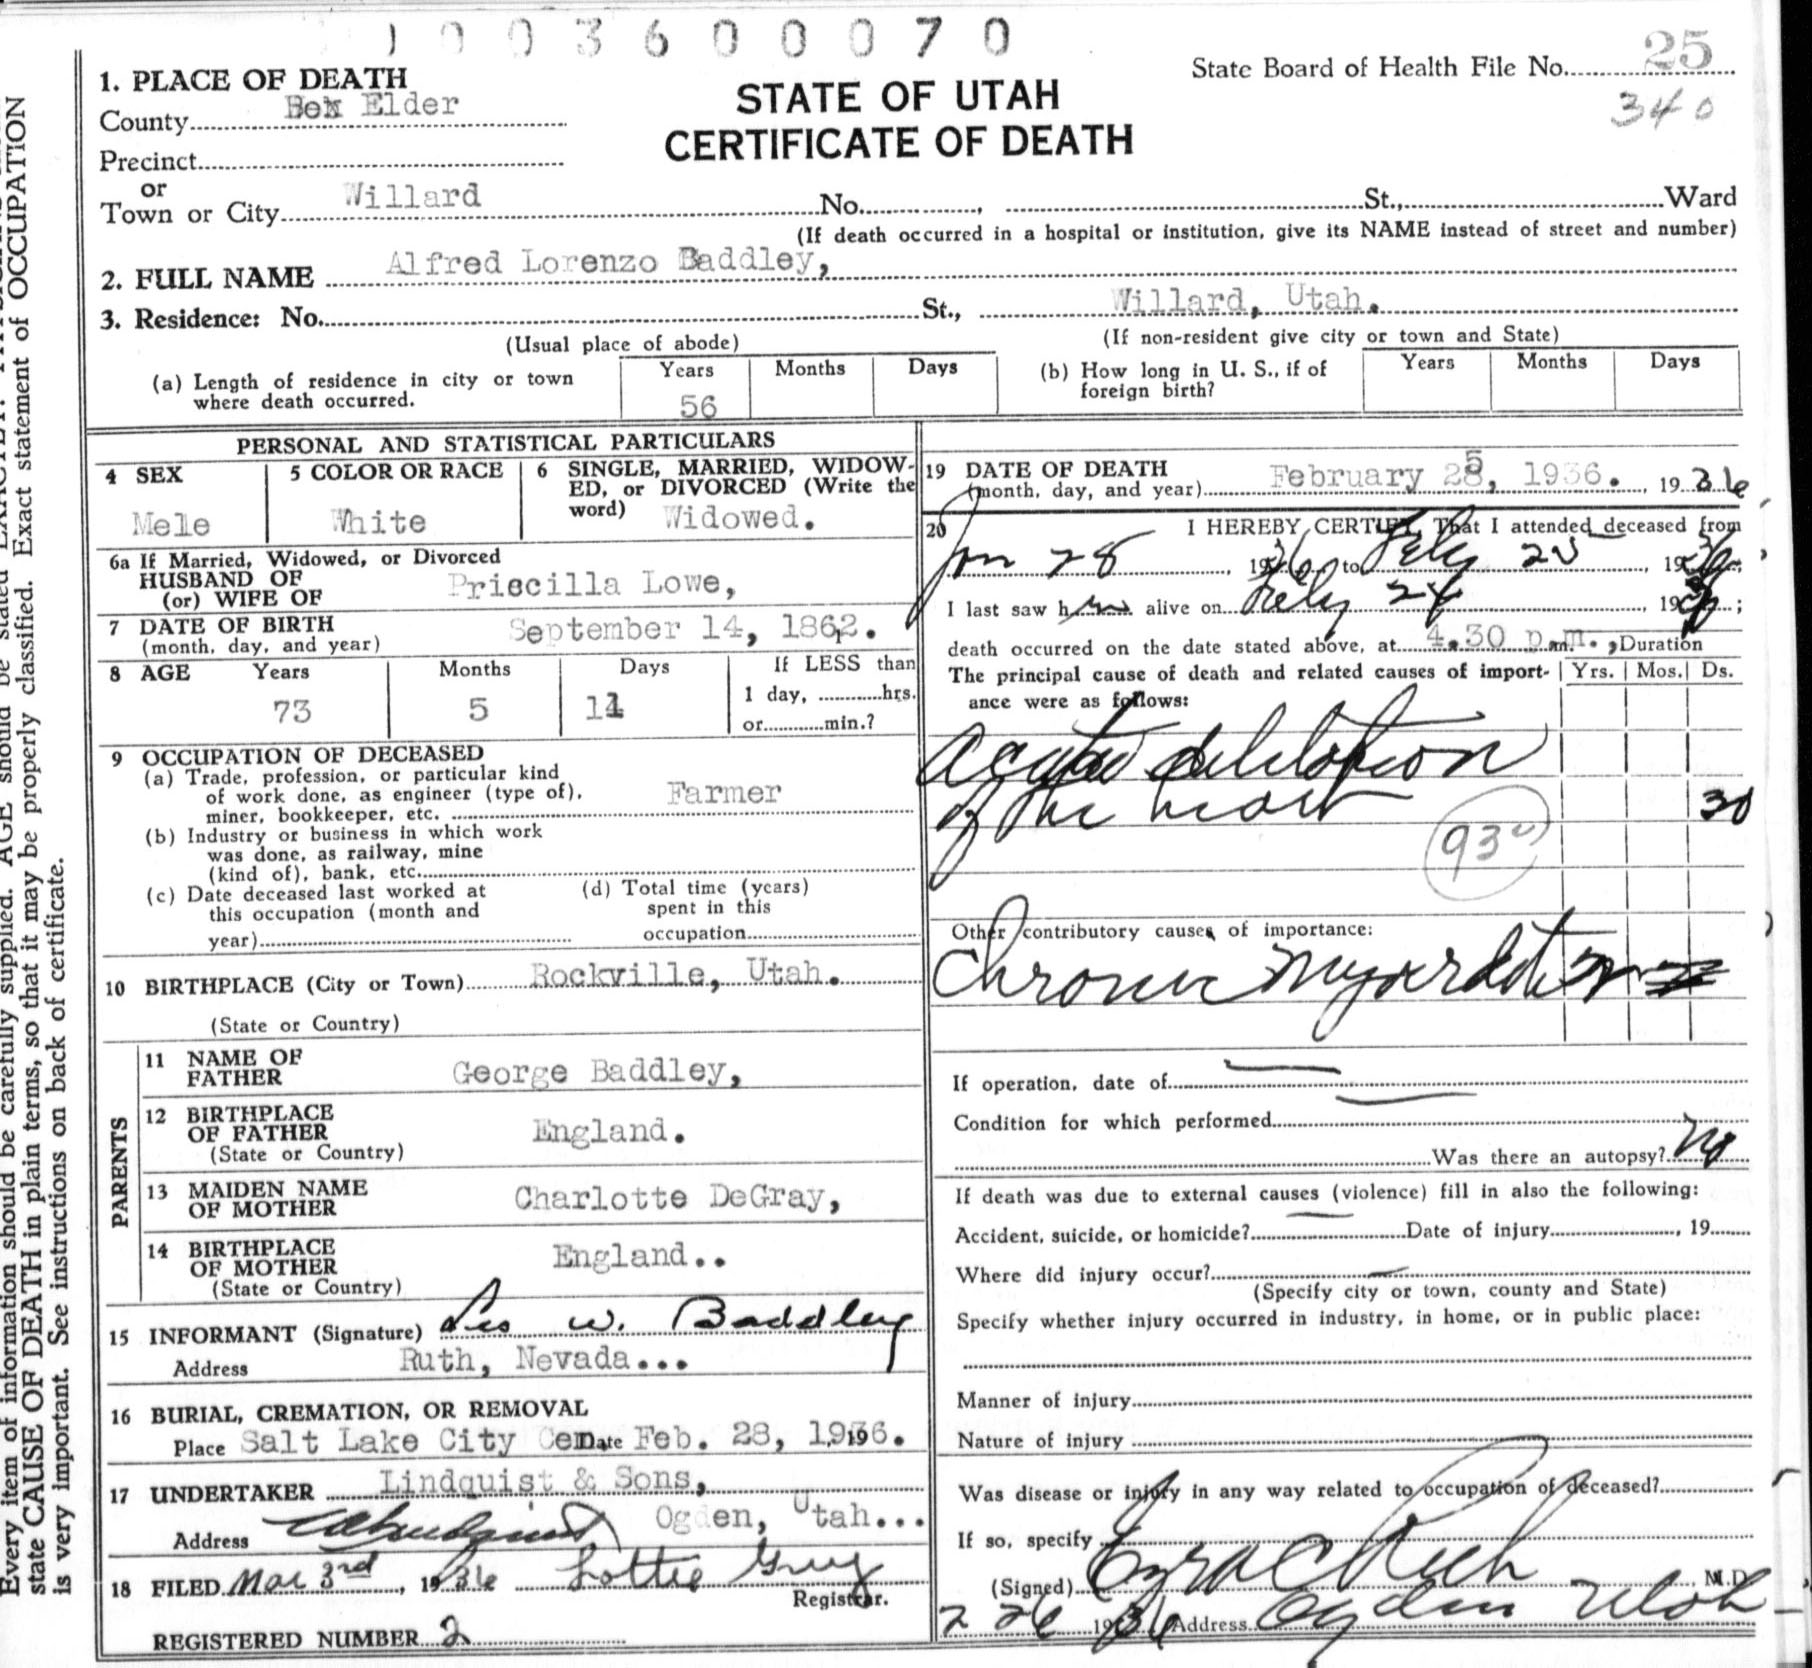 1003600070
25
State Board of Health File No.
340
1. PLACE OF DEATH
STATE OF UTAH
CERTIFICATE OF DEATH
County Box Elder
Precinct
or
Town or City Willard No. , St., Ward
(If death occurred in a hospital or institution, give its NAME instead of street and number)
2. FULL NAME Alfred Lorenzo Baddley,
3. Residence: No. St., Willard, Utah.
(Usual place of abode) (If non-resident give city or town and State)
(a) Length of residence in city or town where death occurred. Years 56 Months Days
(b) How long in U. S., if of foreign birth? Years Months Days
PERSONAL AND STATISTICAL PARTICULARS
4 SEX Mele
5 COLOR OR RACE White
6 SINGLE, MARRIED, WIDOW-
ED, or DIVORCED (Write the
word) Widowed.
6a If Married, Widowed, or Divorced
HUSBAND OF
(or) WIFE OF Priscilla Lowe,
7 DATE OF BIRTH
(month, day, and year) September 14, 1862.
8 AGE Years 73 Months 5 Days 11
If LESS than
1 day, hrs.
or min.?
9 OCCUPATION OF DECEASED
(a) Trade, profession, or particular kind
of work done, as engineer (type of),
miner, bookkeeper, etc. Farmer
(b) Industry or business in which work
was done, as railway, mine
(kind of), bank, etc.
(c) Date deceased last worked at
this occupation (month and
year)
(d) Total time (years)
spent in this
occupation
10 BIRTHPLACE (City or Town) Rockville, Utah.
(State or Country)
PARENTS
11 NAME OF
FATHER George Baddley,
12 BIRTHPLACE
OF FATHER England.
(State or Country)
13 MAIDEN NAME
OF MOTHER Charlotte DeGray,
14 BIRTHPLACE
OF MOTHER England..
(State or Country)
15 INFORMANT (Signature) W. Baddley
Address Ruth, Nevada...
16 BURIAL, CREMATION, OR REMOVAL
Place Salt Lake City Cem Date Feb. 28, 1936.
17 UNDERTAKER Lindquist & Sons,
Address Ogden, Utah...
18 FILED Mar 3rd, 1936 Lottie Registrar.
REGISTERED NUMBER 2
19 DATE OF DEATH
(month, day, and year) February 25, 1936. , 1936
20 I HEREBY CERTIFY, That I attended deceased from
Jan 28, 1936 to Feby 25, 1936;
I last saw him alive on Feby 24, 1936;
death occurred on the date stated above, at 4.30 p.m. m.
Duration
The principal cause of death and related causes of import-
ance were as follows:
Yrs. Mos. Ds.
Acute dilitation
of the heart 30
93
Other contributory causes of importance:
Chronic
If operation, date of
Condition for which performed
Was there an autopsy? No
If death was due to external causes (violence) fill in also the following:
Accident, suicide, or homicide? Date of injury , 19
Where did injury occur?
(Specify city or town, county and State)
Specify whether injury occurred in industry, in home, or in public place:
Manner of injury
Nature of injury
Was disease or injury in any way related to occupation of deceased?
If so, specify
(Signed) Ezra C Rich, M.D.
2 26 1936 Address Ogden Utah
Every item of information should be carefully supplied. AGE should be stated EXACTLY.
state CAUSE OF DEATH in plain terms, so that it may be properly classified. Exact statement of OCCUPATION
is very important. See instructions on back of certificate.